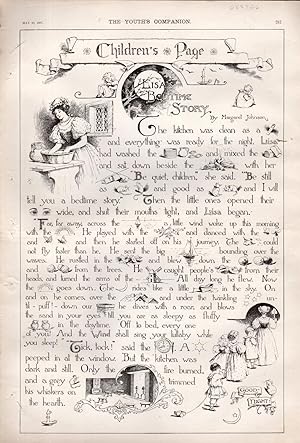 MAY 13, 1897.
THE YOUTH'S COMPANION.
Children's Page
Lisa's
Bedtime
Story.
By Margaret Johnson.
The kitchen was clean as a
and everything was ready for the night. Luisa
had washed the and mixed the
and sat down beside the with her
Be quiet, children," she said. "Be still
as and good as and I will
tell you a bedtime story." Then the little ones opened their
wide, and shut their mouths tight, and Luisa began.
Far, far away, across the a little wind woke up this morning
with the He played with the and danced with the
and and then he started off on his journey. The could
not fly faster than he. He sent the big bounding over the
waves. He rustled in the and blew down the
from the trees. He caught people's from their
heads, and turned the arms of the All day long he flew. Now
the goes down. The rides like a little in the sky. On
and on he comes, over the and under the twinkling un-
til - puff! - down our he drives with a roar, and blows
the sand in your eyes till you are as sleepy as fluffy
in the daytime. Off to bed, every one
of you! And the Wind shall sing your lullaby while
you sleep!" "Tick, tock!" said the A
peeped in all the window. But the kitchen was
dark and still. Only the fire burned,
and a grey trimmed
his whiskers on
the hearth.
GOOD-
NIGHT